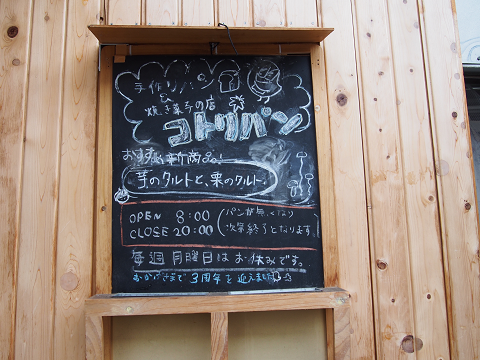 手作りパン
&
焼き菓子の店
コトリパン
おすすめ新商品!
芋のタルトと、栗のタルト。
OPEN 8:00 (パンが無くなり
CLOSE 20:00 次第終了となります。)
毎週月曜日はお休みです。
おかげさまで3周年を迎えました